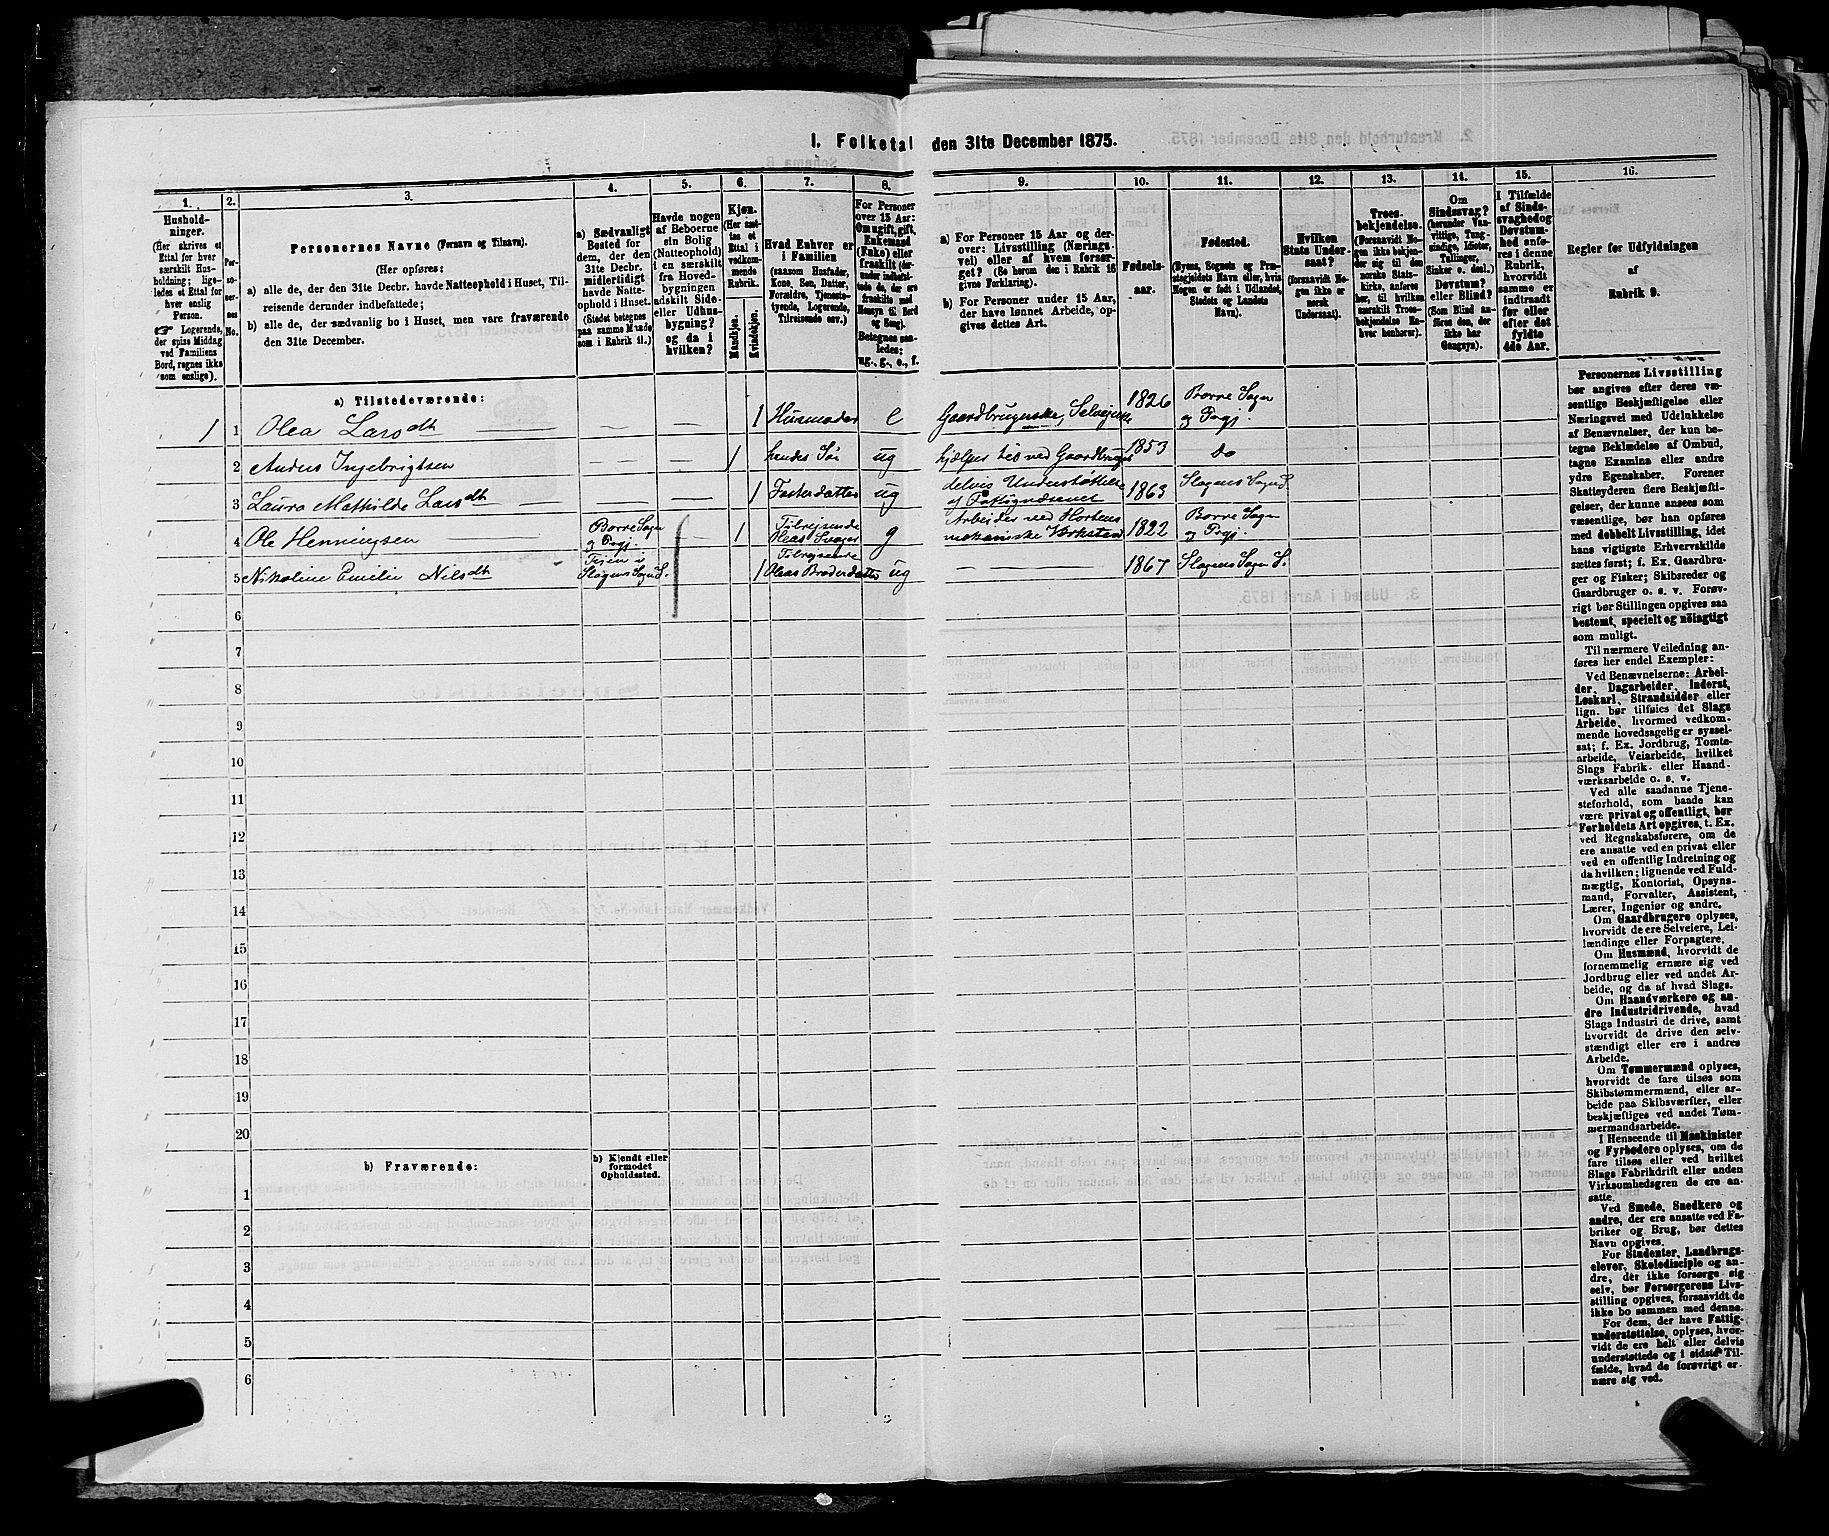 1. Folketal den 31te December 1875.
1.
Hushold-
ninger.
(Her skrives et
Ettal for hver
særskilt Hus-
holdning; lige-
ledes et Ettal for
hver enslig
Person.
☞ Logerende,
der spise Middag
ved Familiens
Bord, regnes ikke
som enslige).
2.
Per-
so-
ner-
nes
No.
3.
Personernes Navne (Fornavn og Tilnavn).
(Her opføres:
a) alle de, der den 31te Decbr. havde Natteophold i Huset, Til-
reisende derunder indbefattede;
b) alle de, der sædvanlig bo i Huset, men vare fraværende
den 31te December.
4.
a) Sædvanligt
Bosted for
dem, der den
31te Decbr.
midlertidigt
havde Natte-
ophold i Huset.
(Stedet betegnes
paa samme Maade
som i Rubrik 11.)
5.
Havde nogen
af Beboerne
sin Bolig
(Natteophold)
i en særskilt
fra Hoved-
bygningen
adskilt Side-
eller Udhus-
bygning?
og da i
hvilken?
6.
Kjøn.
(Her sæt-
tes et
Ettal i
vedkom-
mende
Rubrik.
Mandkjøn.
Kvindekjøn.
7.
Hvad Enhver er
i Familien
(saasom Husfader,
Kone, Søn, Datter,
Forældre, Tjeneste-
tyende, Logerende,
Tilreisende osv.)
8.
For Personer
over 15 Aar:
Om ugift, gift,
Enkemand
(Enke) eller
fraskilt (der-
under indbefat-
tede de, der ere
fraskilte med
Hensyn til Bord
og Seng).
Betegnes saa-
ledes:
ug., g., e., f.
9.
a) For Personer 15 Aar og der-
over: Livsstilling (Nærings-
vei) eller af hvem forsør-
get? (Se herom den i Rubrik 16
givne Forklaring).
b) For Personer under 15 Aar,
der have lønnet Arbeide, op-
gives dettes Art.
10.
Fødsels-
aar.
11.
Fødested.
(Byens, Sognets og Præ-
stegjeldets Navn eller, hvis
Nogen er født i Udlandet,
Stedets og Landets
Navn).
12.
Hvilken
Stats Under-
saat?
(forsaavidt No-
gen ikke er
norsk
Undersaat).
13.
Troes-
bekjendelse.
(Forsaavidt No-
gen ikke bekjen-
der sig til den
norske Stats-
kirke, anføres
her, til hvilken
særskilt Troes-
bekjendelse En-
hver henhører).
14.
Om
Sindssvag?
(herunder Van-
vittige, Tung-
sindige, Idioter,
Tullinger,
Sinker o. desl.)
Døvstum?
eller Blind?
(Som Blind an-
føres den, der
ikke har
Gangsyn).
15.
I Tilfælde
af Sinds-
svaghed og
Døvstum-
hed anfø-
res i denne
Rubrik,
hvorvidt
samme er
indtraadt
før eller
efter det
fyldte
4de Aar.
16.
Regler for Udfyldningen
af
Rubrik 9.
a) Tilstedeværende:
1 1 Olea Larsdt — — — 1 Husmoder e Gaardbrugerske, Selveierske 1826 Borre Sogn
og Prgj.
2 Anders Ingebrigtsen — — 1 hendes Søn ug hjælper til ved Gaardbruget 1853 do
3 Laura Mathilde Larsdt — — 1 Fosterdatter ug delvis Understøttelse
af Fattigvæsenet 1863 Slagens Sogn S.
4 Ole Henningsen — Borre Sogn
og Prgj. 1 Tilreisende
Oleas Svoger g Arbeider ved Hortens
mekaniske Værksted 1822 Borre Sogn
og Prgj.
5 Nikoline Emilie Nilsdt i
Slagens Sogn S. 1 Tilreisende
Oleas Broderdatter ug — — 1867 Slagens Sogn S.
6
7
8
9
10
11
12
13
14
15
16
17
18
19
20
b) Fraværende:
b) Kjendt eller
formodet
Opholdssted.
1
2
3
4
5
6
Personernes Livsstilling
bør angives efter deres væ-
sentlige Beskjæftigelse eller
Næringsvei med Udelukkelse
af Benævnelser, der kun be-
tegne Beklædelse af Ombud,
tagne Examina eller andre
ydre Egenskaber. Forener
Skatteyderen flere Beskjæf-
tigelser, der kunne ansees som
væsentlige, bør han opføres
med dobbelt Livsstilling, idet
hans vigtigste Erhvervskilde
sættes først; f. Ex. Gaardbru-
ger og Fisker; Skibsreder og
Gaardbruger o. s. v. Forøv-
rigt bør Stillingen opgives saa
bestemt, specielt og nøiagtigt
som muligt.
Til nærmere Veiledning an-
føres her endel Exempler:
Ved Benævnelserne: Arbei-
der, Dagarbeider, Inderst,
Løskarl, Strandsidder eller
lign. bør tilføies det Slags
Arbeide, hvormed vedkom-
mende hovedsagelig er syssel-
sat; f. Ex. Jordbrug, Tomte-
arbeide, Veiarbeide, hvilket
Slags Fabrik- eller Haand-
værksarbeide o. s. v.
Ved alle saadanne Tjene-
steforhold, som baade kan
være privat og offentligt, bør
Forholdets Art opgives, t. Ex.
ved Regnskabsførere, om de
ere ansatte ved en privat eller
ved en offentlig Indretning og
da hvilken; lignende ved Fuld-
mægtig, Kontorist, Opsyns-
mand, Forvalter, Assistent,
Lærer, Ingeniør og andre.
Om Gaardbrugere oplyses,
hvorvidt de ere Selveiere, Lei-
lændinge eller Forpagtere.
Om Husmænd, hvorvidt de
fornemmelig ernære sig ved
Jordbrug eller ved andet Ar-
beide, og da af hvad Slags.
Om Haandværkere og an-
dre Industridrivende, hvad
Slags Industri de drive, samt
hvorvidt de drive den selv-
stændigt eller ere i andres
Arbeide.
Om Tømmermænd oplyses,
hvorvidt de fare tilsøs som
Skibstømmermænd, eller ar-
beide paa Skibsværfter, eller
beskjæftiges ved andet Tøm-
mermandsarbeide.
I Henseende til Maskinister
og Fyrbødere oplyses, om de
fare tilsøs eller ved hvilket
Slags Fabrikdrift eller anden
Virksomhedsgren de ere an-
satte.
Ved Smede, Snedkere og
andre, der ere ansatte ved Fa-
briker og Brug, bør dettes
Navn opgives.
For Studenter, Landbrugs-
elever, Skoledisciple og an-
dre, der ikke forsørge sig
selv, bør Forsørgerens Livs-
stilling opgives, forsaavidt de
ikke bo sammen med denne.
For dem, der have Fattig-
understøttelse, oplyses, hvor-
vidt de ere helt eller delvis
understøttede og i sidste Til-
fælde, hvad de forøvrigt er-
nære sig ved.